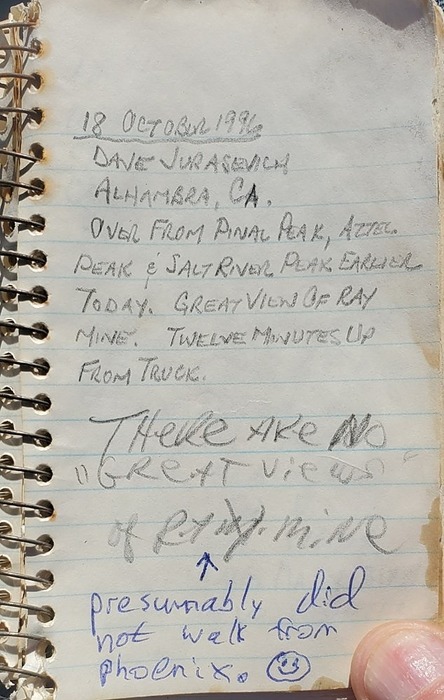 18 OCTOBER 1996
DAVE JURASEVICH
ALHAMBRA, CA.
OVER FROM PINAL PEAK, AZTEC
PEAK & SALT RIVER PEAK EARLIER
TODAY. GREAT VIEW OF RAY
MINE. TWELVE MINUTES UP
FROM TRUCK.
THERE ARE NO
"GREAT VIEWS"
of RAY mine
↑
presumably did
not walk from
phoenix. ☺